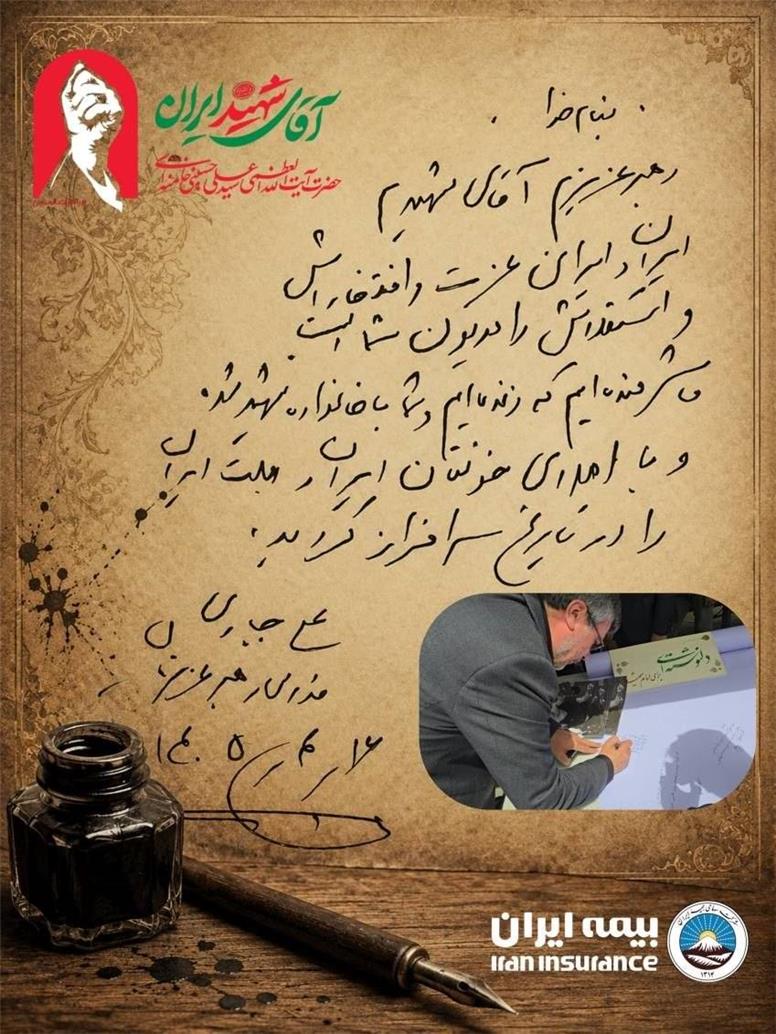 آقای شهید ایران
حضرت آیت الله العظمی سید علی حسینی خامنه‌ای
بنام خدا
رهبر عزیزم آقای شهیدم
ایران و ایرانی عزت و افتخارش
و استقلالش را مدیون شما است.
ما شرمنده ایم که زنده ایم و شما با خانواده شهید شدید.
و با اهدای خونتان ایران و ملت ایران
را در تاریخ سرافراز کردید.
علی جباری
فدای رهبر عزیزمان
دلنوشته‌ای
برای امام شهید
بیمه ایران
iran insurance
۱۳۱۴